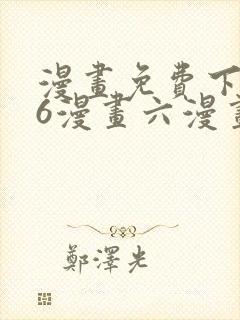 漫畫免費下
6漫畫六漫畫
鄭澤光